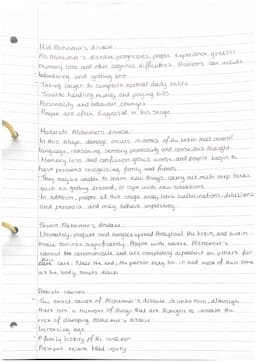 Mild Alzheimer's disease
As Alzheimer's disease progresses, people experience greater
memory loss and other cognitive difficulties. Problems can include
wandering and getting lost
Taking longer to complete normal daily tasks
Trouble handling money and paying bills
Personality and behaviour changes
People are often diagnosed in this stage
Moderate Alzheimer's disease
In this stage, damage occurs in areas of the brain that control
language, reasoning, sensory processing and conscious thought
Memory loss and confusion grows worse, and people begin to
have problems recognising family and friends
They may be unable to learn new things, carry out multi-step tasks
such as getting dressed, or cope with new situations
In addition, people at this stage may have hallucinations, delusions
and paranoia and may behave impulsively
Severe Alzheimer's disease
Ultimately, plaques and tangles spread throughout the brain, and brain
tissue shrinks significantly. People with severe Alzheimer's
cannot communicate and are completely dependent on others for
their care. Near the end, the person may be in bed most of their time
as the body shuts down
Possible causes
The exact cause of Alzheimer's disease is unknown, although
there are a number of things that are thought to increase the
risk of developing Alzheimer's disease
Increasing age
A family history of the condition
Previous severe head injury